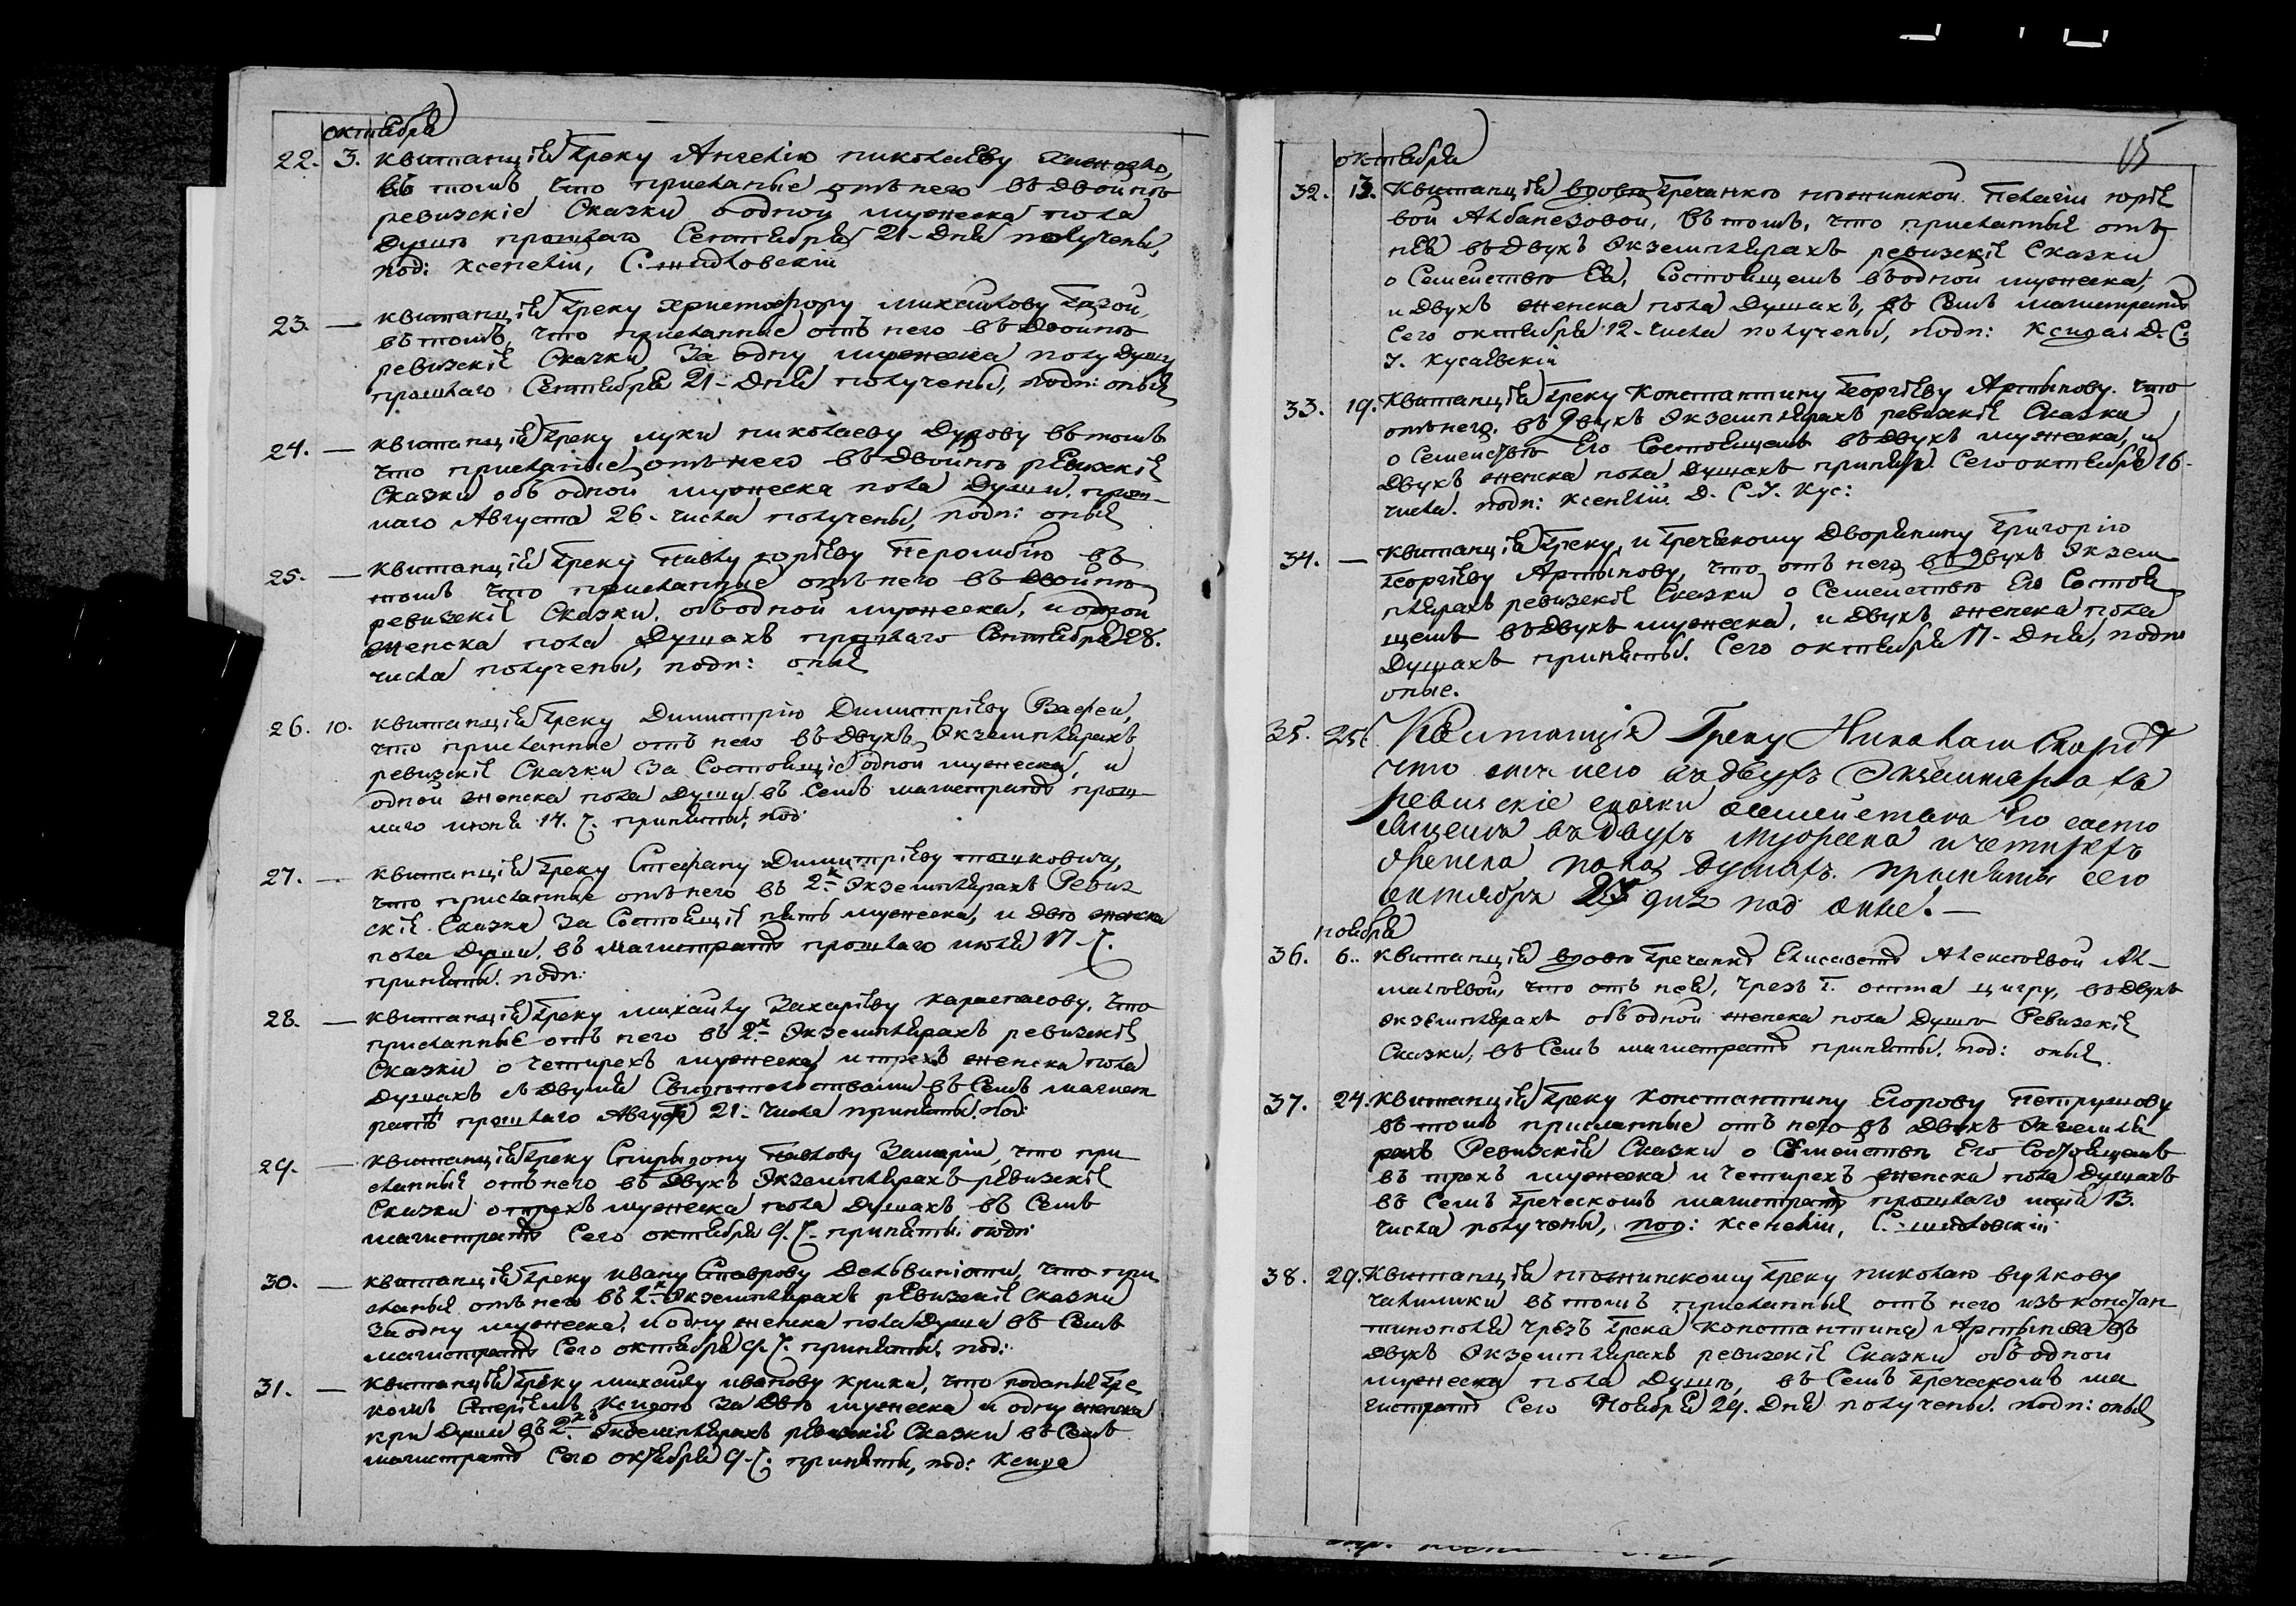 октября
22. 3. квитанція Греку Ангелію николаеву
въ томъ что присланые отъ него въ двойнѣ
ревизскіе Сказки о одной мужеска пола
Душѣ прошлаго Сентября 21- Дня получены,
под: Ксенелій, С. шидловскій
23. — квитанція Греку христофору михайлову Газой,
въ томъ, что присланные отъ него въ Двойнѣ
ревизскіе Сказки За одну мужеска полу Душу
прошлаго Сентября 21- Дня получены, подп: оныя
24. — квитанція Греку луки николаеву Дурову въ томъ
что присланые отъ него въ Двойнѣ ревизскіе
Сказки объ одной мужеска пола Души прош-
лаго Августа 26- числа получены, подп: оныя
25. — квитанція Греку Павлу юріеву въ
томъ что присланные отъ него въ Двойнѣ
ревизскіе Сказки, объ одной мужеска, и одной
женска пола Душахъ прошлаго Сентября 28.
числа получены, подп: оныя
26. 10. квитанція Греку Димитрію Димитріеву Вафеи,
что присланные отъ него въ Двухъ Экземплярахъ
ревизскіе Сказки За Состоящіе одной мужеска, и
одной женска пола Души въ Семъ магистратѣ прош-
лаго июня 14. ч. приняты, под:
27. — квитанція Греку Стефану Димитріеву тошковичу,
что присланные отъ него въ 2х Экземплярахъ Ревиз
скіе Сказки За Состоящіе пять мужеска, и двѣ женска
пола Души, въ магистратѣ прошлаго июля 17 ч.
приняты. подп:
28. — квитанція Греку михайлу Захаріеву карастасову, что
присланные отъ него въ 2х Экземплярахъ ревизскіе
Сказки о четырехъ мужеска и трехъ женска пола
Душахъ съ двумя Свидѣтельствами въ Семъ магист
ратѣ прошлаго Августа 21- числа приняты. под:
29. — квитанція Греку Спиридону Павлову что при
сланные отъ него въ Двухъ Экземплярахъ ревизскіе
Сказки о трехъ мужеска пола Душахъ въ Семъ
магистратѣ Сего октября 9. ч. приняты. подп:
30. — квитанція Греку ивану Ставрову Дельвиніоти, что при
сланые отъ него въ 2х Экземплярахъ ревизскіе Сказки
За одну мужеска, и одну женска пола Души въ Семъ
магистратѣ Сего октября 9. ч. приняты, под:
31. — квитанція Греку михайлу иванову крики, что поданые Гре
комъ Стеріемъ Ксидою За Двѣ мужеска и одну женска
Души въ 2хъ Экземплярахъ ревизскіе Сказки въ Семъ
магистратѣ Сего октября 9. ч. приняты, под: Ксида
15
октября
32. 13. Квитанція вдовѣ Гречанкѣ нѣжинской Пелагіи юріе
вой Албанезовой, въ томъ, что присланныя отъ
нея въ Двухъ Экземплярахъ ревизскіе Сказки
о Семействѣ Ея, Состоящемъ въ одной мужеска,
и Двухъ женска пола Душахъ, въ Семъ магистратѣ
Сего октября 12- числа получены, подп: Ксида Д. С:
I. Кусаевскій
33. 19. Квитанція Греку Константину Георгіеву Артынову что
отъ него въ двухъ Экземплярахъ ревизскіе Сказки
о Семействѣ Его Состоящемъ въ Двухъ мужеска, и
Двухъ женска пола Душахъ приняты Сего октября 16-
числа. подп: Ксенелій Д. С. I. Кус:
34. — Квитанція Греку, и Греческому Дворянину Григорію
Георгіеву Артынову, что отъ него въ Двухъ Экзем
плярахъ ревизскіе Сказки о Семействѣ Его Состоя
щемъ въ Двухъ мужеска, и Двухъ женска пола
Душахъ приняты. Сего октября 17- Дня, подп
оные.
35. 25. Квитанція Греку Николаю
что отъ него въ двухъ Экземплярахъ
ревизскіе сказки о семействѣ Его состо
ящемъ въ двухъ мужеска и четирехъ
женска пола душахъ приняты сего
октября 25 дня под оные. —
ноября
36. 6. квитанція вдовѣ Гречанкѣ Елисаветѣ Алексѣевой
что отъ нея, чрезъ Г. въ Двухъ
экземплярахъ объ одной женска пола Душѣ Ревизскіе
Сказки, въ Семъ магистратѣ приняты. под: оныя.
37. 24. квитанція Греку Константину Егорову Петрушову
въ томъ присланные отъ него въ Двухъ Экземпля
рахъ Ревизскія Сказки о Семействѣ Его Состоящемъ
въ трехъ мужеска и четырехъ женска пола Душахъ
въ Семъ Греческомъ магистратѣ прошлаго 13.
числа получены, под: Ксенелій, С. шидловскій
38. 29. Квитанція нѣжинскому Греку николаю
въ томъ присланныя отъ него изъ констан
тинополя чрезъ Грека константина Артынова въ
Двухъ Экземплярахъ ревизскіе Сказки объ одной
мужеска пола Душѣ, въ Семъ Греческомъ ма
гистратѣ Сего Ноября 29. Дня получены. подп: оныя